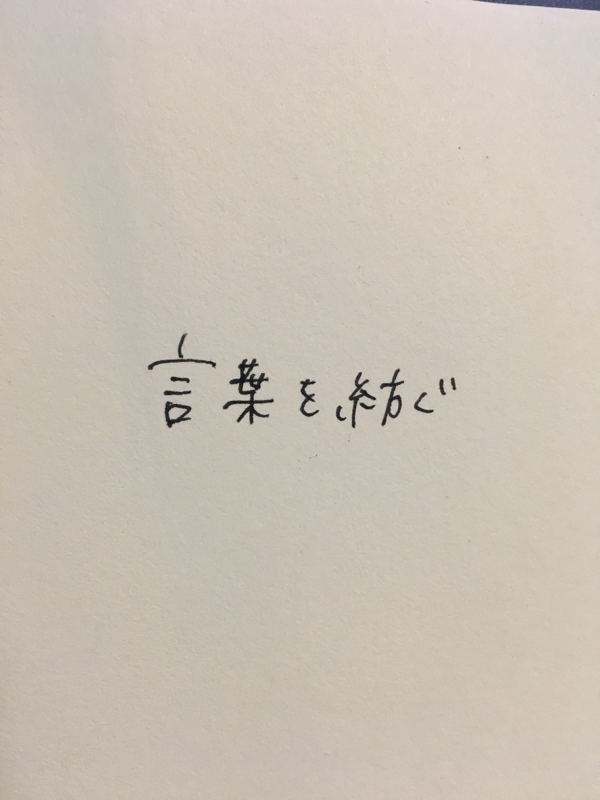 言葉を紡ぐ